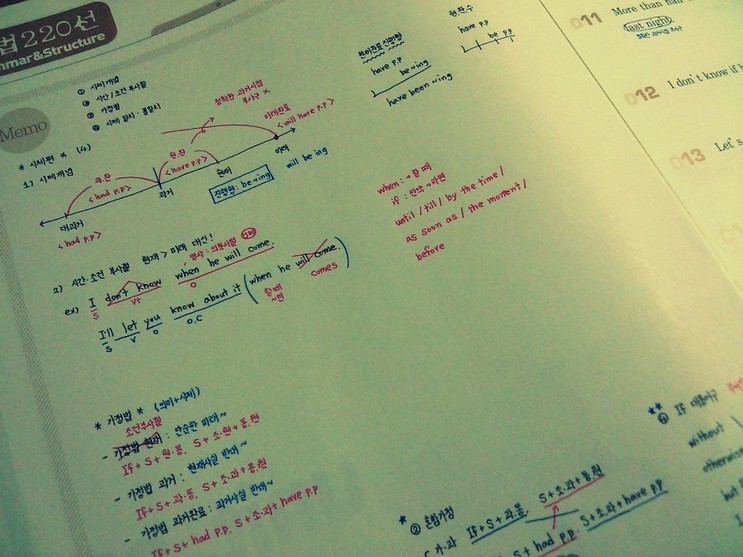 법220선
mmar&Structure
Memo
① 시제개념
② 시간/조건 부사절
③ 가정법
④ 시제 일치·불일치
* 시제편 * (4)
1) 시제개념
명확한 과거시점
부사구 X
미래완료
<will have p.p>
과.완
<had p.p>
현.완
<have p.p>
대과거
<had p.p>
과거
현재
미래
진행형: be ~ing
will be ing
have p.p
be ~ing
have been ~ing
have p.p
be pp
2) 시간·조건 부사절 현재 > 미래 대신!
명사·의문사절
ex) I don't know when he will come.
S Vt O
I'll let you know about it (when he will come.)
S V O O.C
할때
~면
comes
when: ~할 때
if: 만약 ~라면
until / till / by the time /
as soon as / the moment /
before
* 가정법 * (의미+시제)
조건부사절
- 가정법 현재 : 단순한 미래~
If + S + 현.동, S + 조.현 + 동.원
- 가정법 과거 : 현재사실 반대~
If + S + 과.동, S + 조.과 + 동.원
- 가정법 과거완료 : 과거사실 반대~
If + S + had p.p, S + 조.과 + have p.p
② 혼합가정
If + S + 과.동, S + 조.과 + 동.원
had p.p. S + 조.과 + have p.p
④ If 대용어구
without
otherwise
but
011 More than half
last night
012 I don't know if h
013 Let's